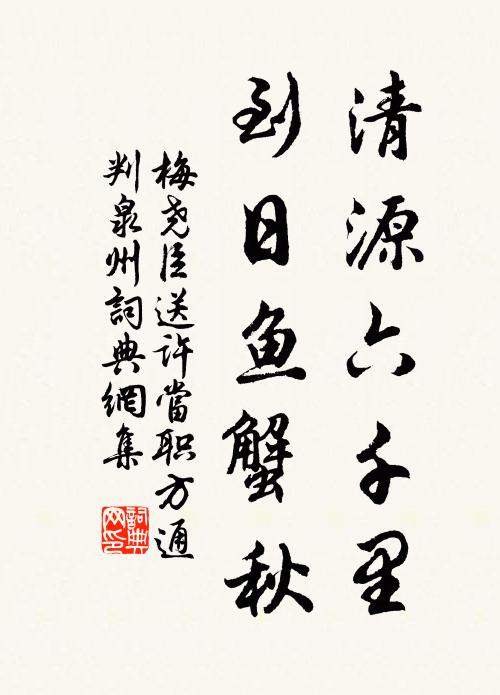 清源六千里
到日鱼蟹秋
梅尧臣送许當职方通
判泉州詞典網集
詞典网印